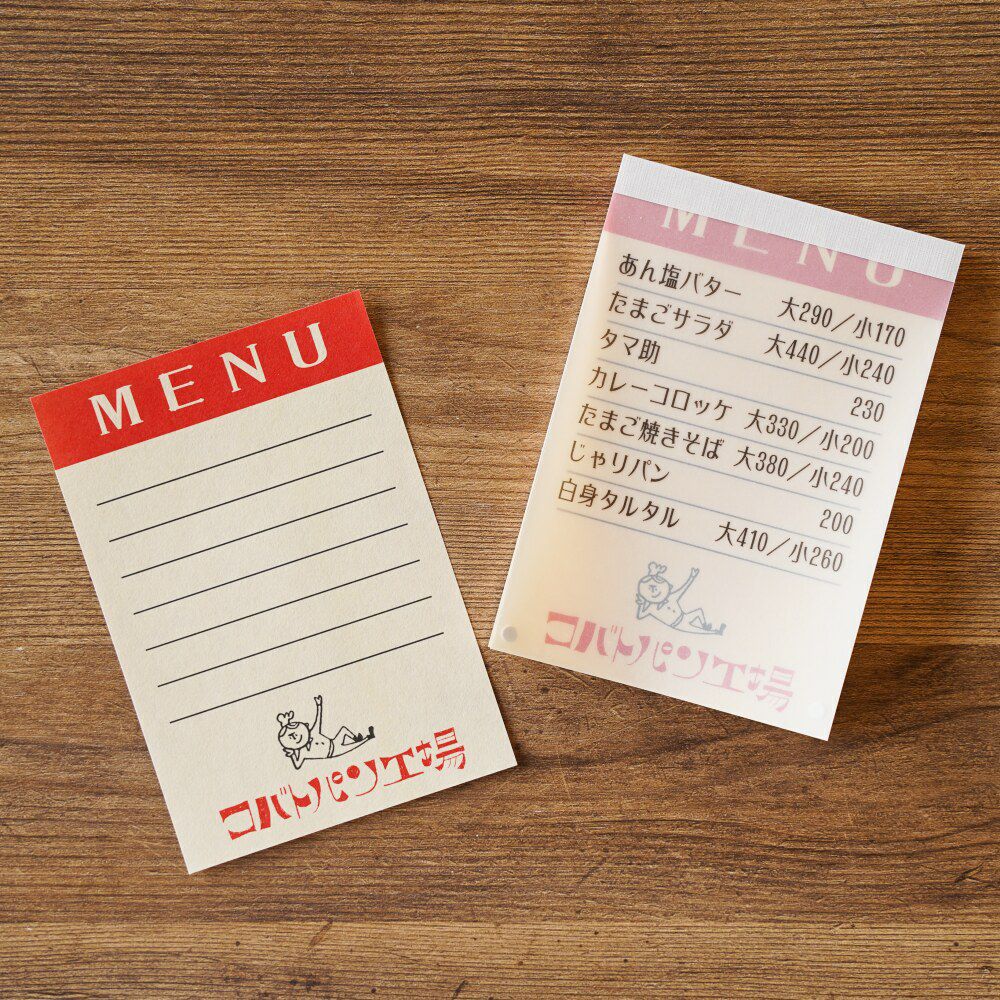 MENU
コバトパン工場
MENU
あん塩バター 大290／小170
たまごサラダ 大440／小240
タマ助 230
カレーコロッケ 大330／小200
たまご焼きそば 大380／小240
じゃりパン 200
白身タルタル 大410／小260
コバトパン工場